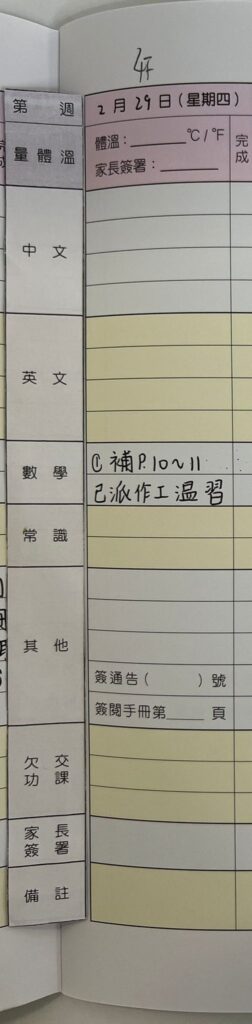 4F
第 週
2月29日(星期四)
量體溫
體溫:______℃/℉
完成
家長簽署:______
中文
英文
數學
① 補P.10~11
已派作工温習
常識
其他
簽通告( )號
簽閱手冊第____頁
欠交
功課
家長
簽署
備註